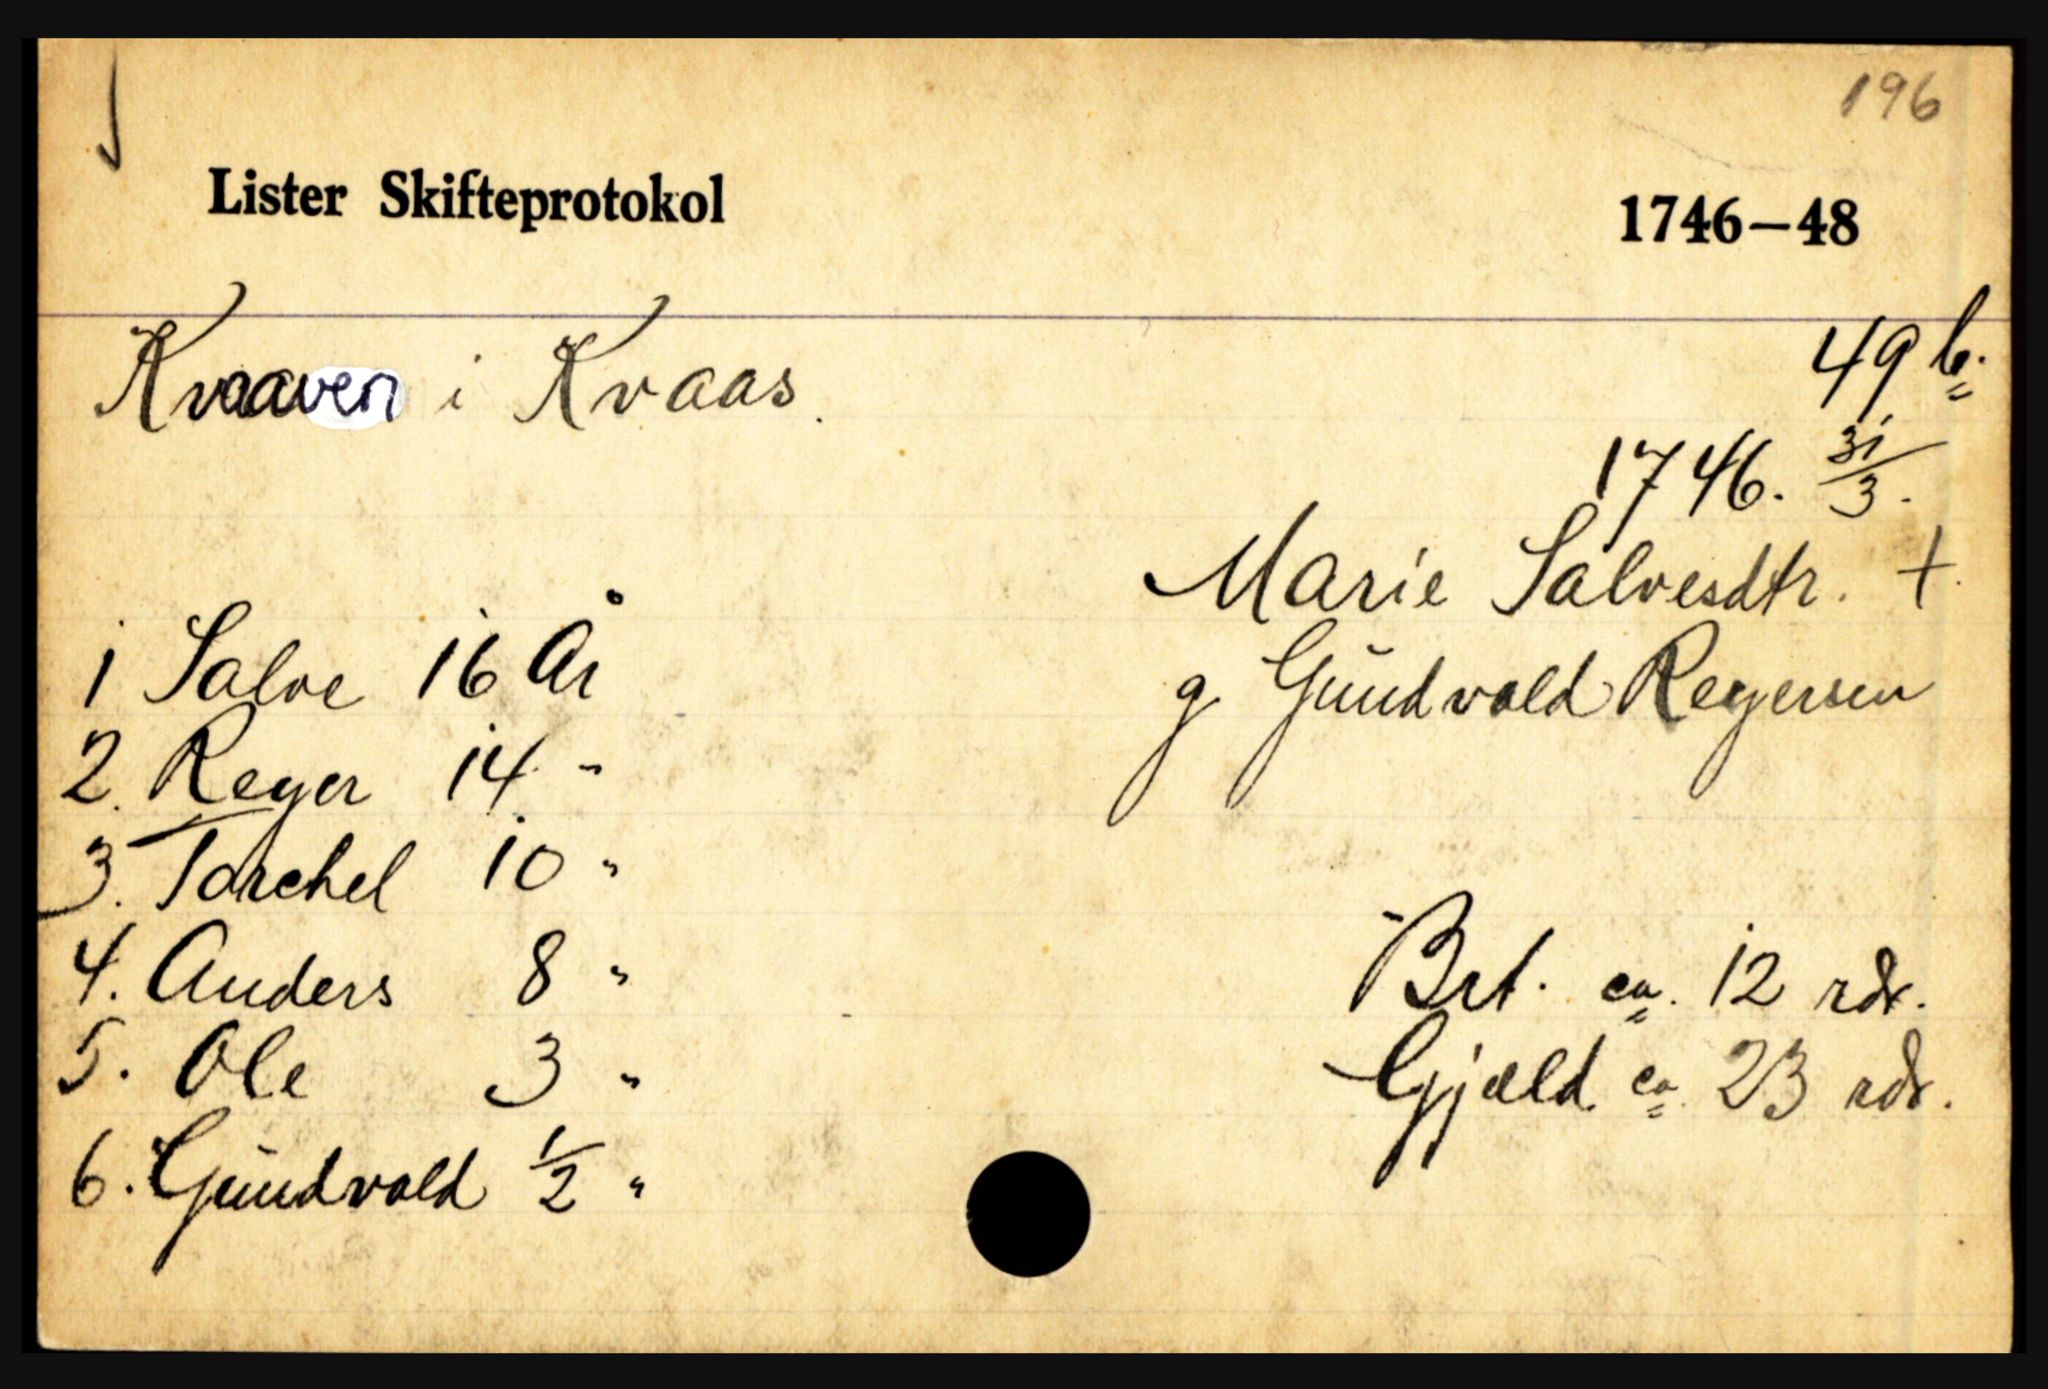 196
Lister Skifteprotokol 1746-48
Kvaaven i Kvaas.
49 b.
1746. 31/3.
Marie Salvesdtr. +.
g Gŭndvald Reyersen
1 Salve 16 År
2. Reyer 14 "
3. Torchel 10 "
4. Anders 8 "
5. Ole 3 "
6. Gŭndvald 1/2 "
Brt. ca. 12 rdr.
Gjæld. ca. 23 rdr.